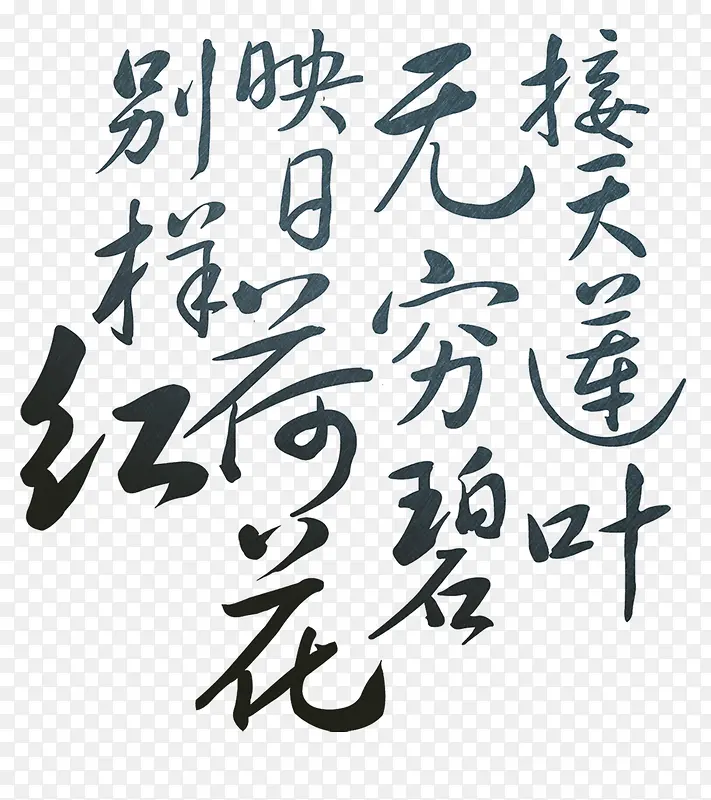 接天莲叶
无穷碧
映日荷花
别样红